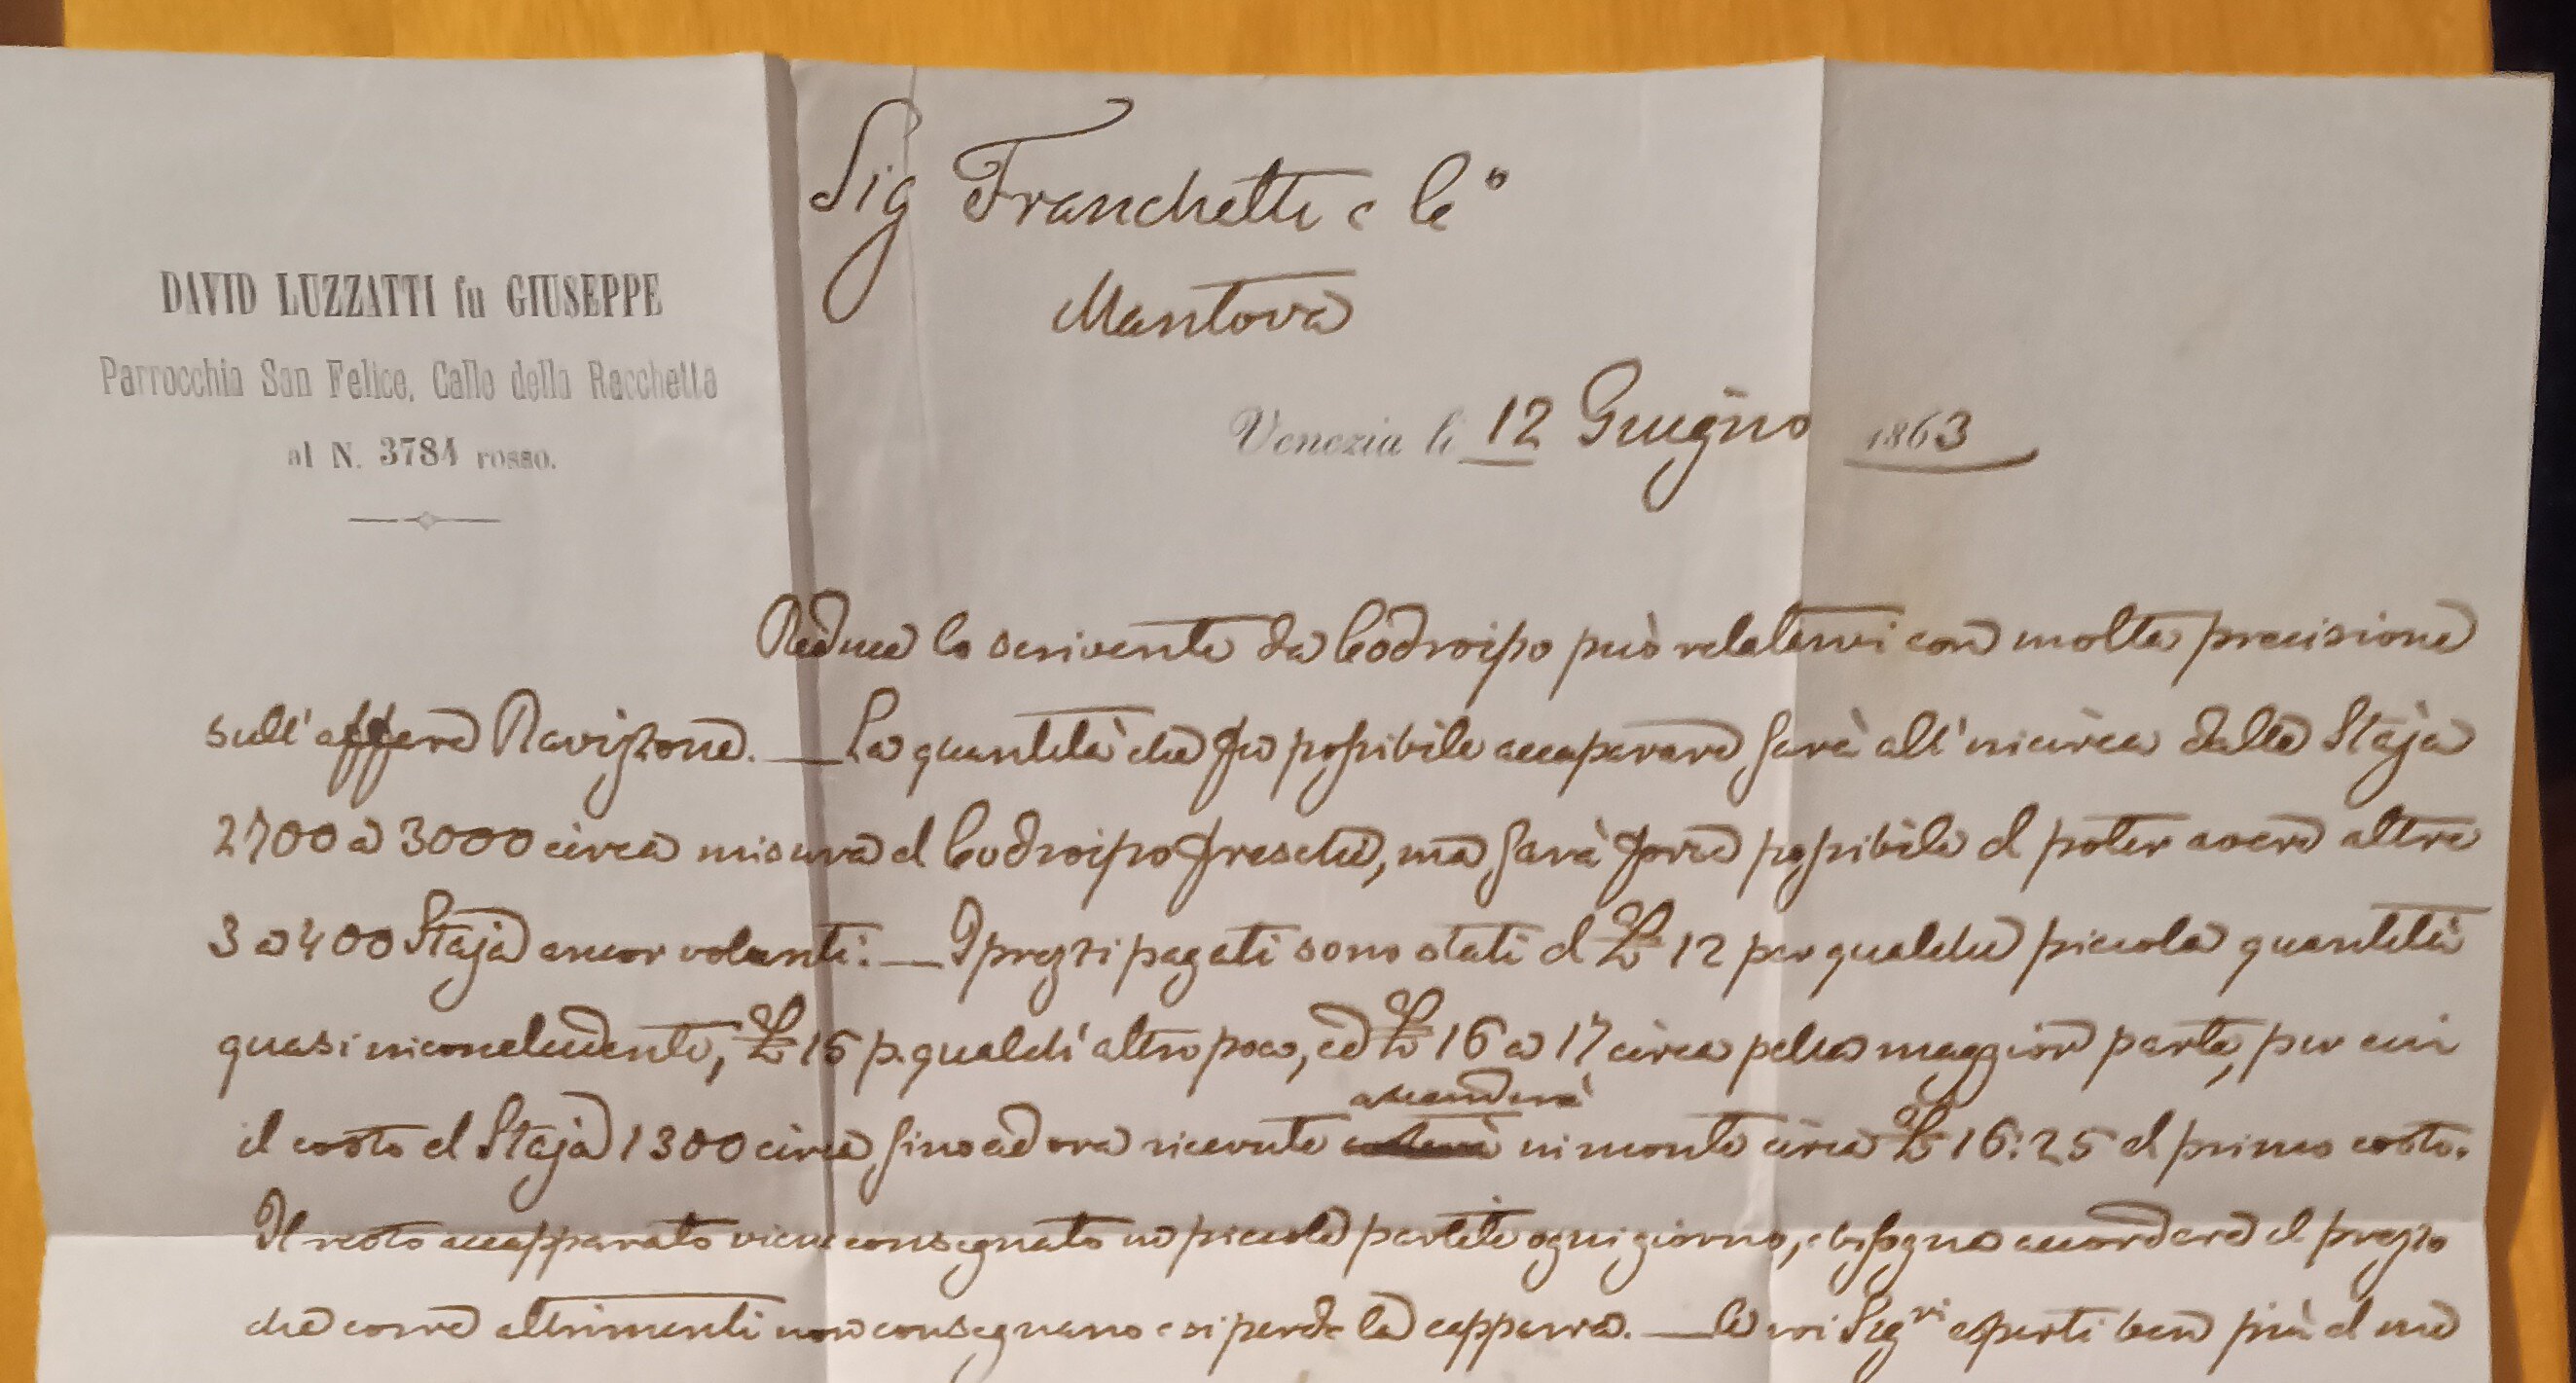 Sig Franchetti e Co
Mantova
DAVID LUZZATTI fu GIUSEPPE
Parrocchia San Felice, Calle della Racchetta
al N. 3784 rosso.
Venezia li 12 Giugno 1863
Reduce lo scrivente da Codroipo può relatarvi con molta precisione
sull'affare Ravizzone. — La quantità che fu possibile accaparare sarà all'incirca dalle Staja
2700 a 3000 circa misura di Codroipo fresche, ma sarà forse possibile di poter avere altre
3 a 400 Staja ancor volanti: — I prezzi pagati sono stati di 12 per qualche piccola quantità
quasi inconcludente, 15 p. qualch' altro poco, ed 16 a 17 circa pella maggior parte, per cui
il costo di Staja 1300 circa sino ad ora ricevute ascenderà in monte circa 16:25 di primo costo.
Il resto accapparato viene consegnato in piccole partite ogni giorno, e bisogna accordare il prezzo
che corre altrimenti non consegnano e si perde la capparra. — Sigri esperti ben più di me